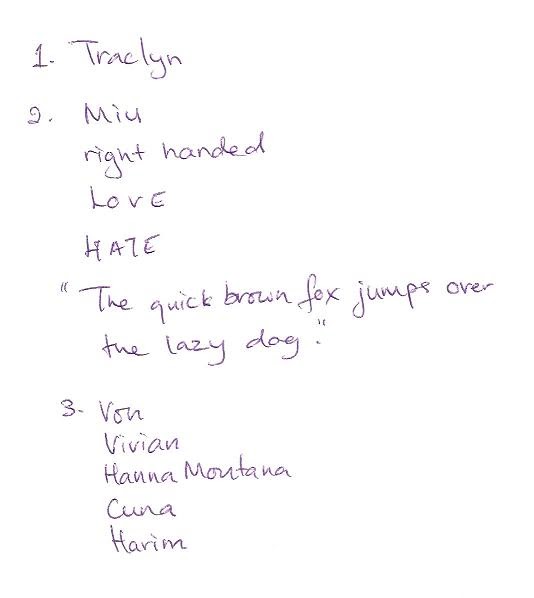 1. Traclyn
2. Miu
right handed
LOVE
HATE
"The quick brown fox jumps over
the lazy dog."
3. Von
Vivian
Hanna Montana
Cuna
Harim